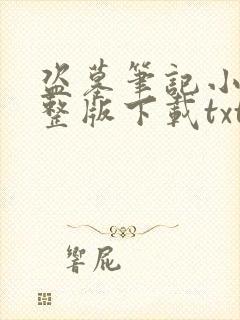 盗墓筆記小
整版下載txt
響屁